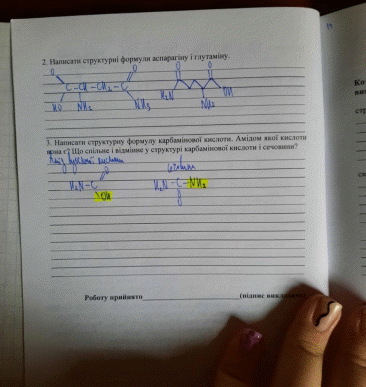 2. Написати структурні формули аспарагіну і глутаміну.
O O O O
C – CH – CH₂ – C
HO NH₂ NH₂ H₂N NH₂ OH
3. Написати структурну формулу карбамінової кислоти. Амідом якої кислоти
вона є? Що спільне і відмінне у структурі карбамінової кислоти і сечовини?
кислоти сечовина
H₂N – C O H₂N – C – NH₂
OH O
Роботу прийнято (підпис викладача)